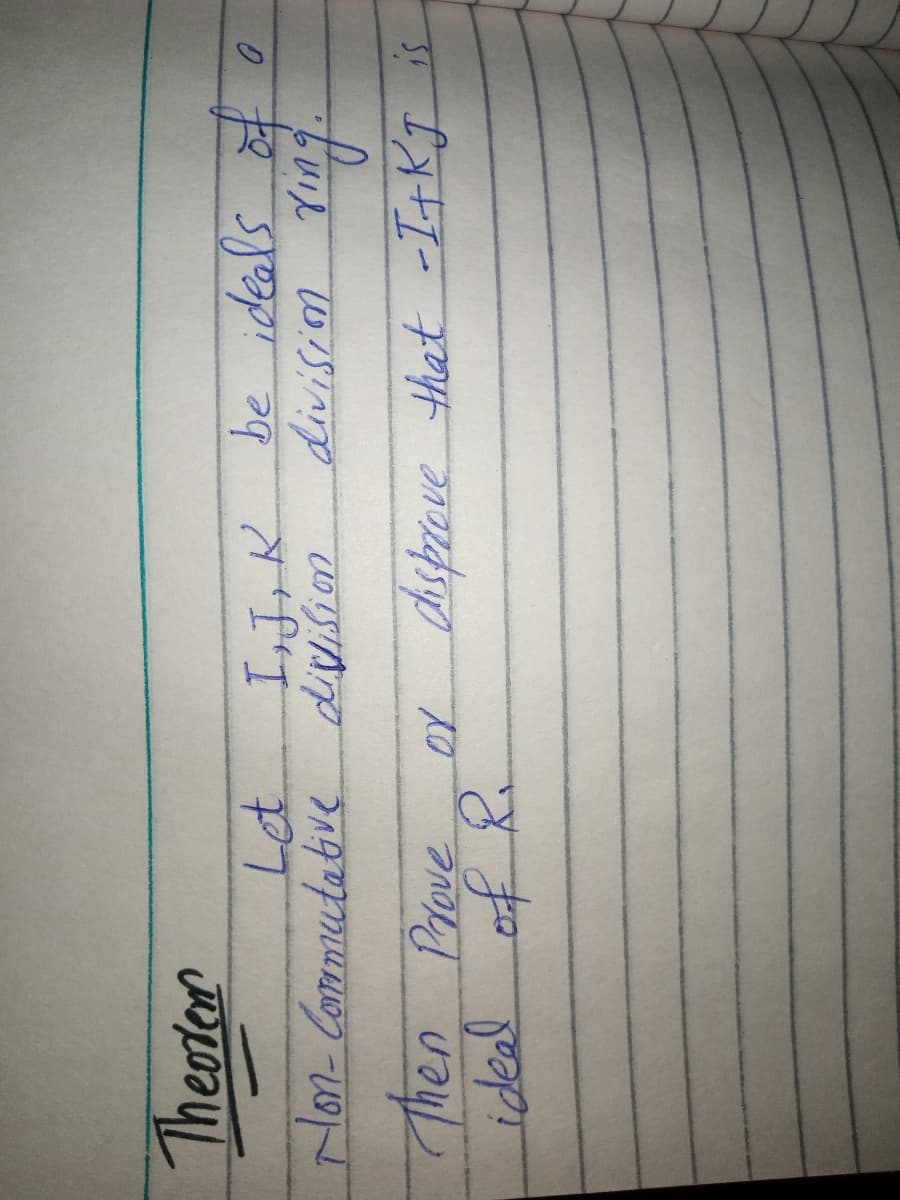 Theorem
Let I, J, K be ideals of a
Non-Commutative division division ring.
Then Prove or disprove that -I+KJ is
ideal of R.